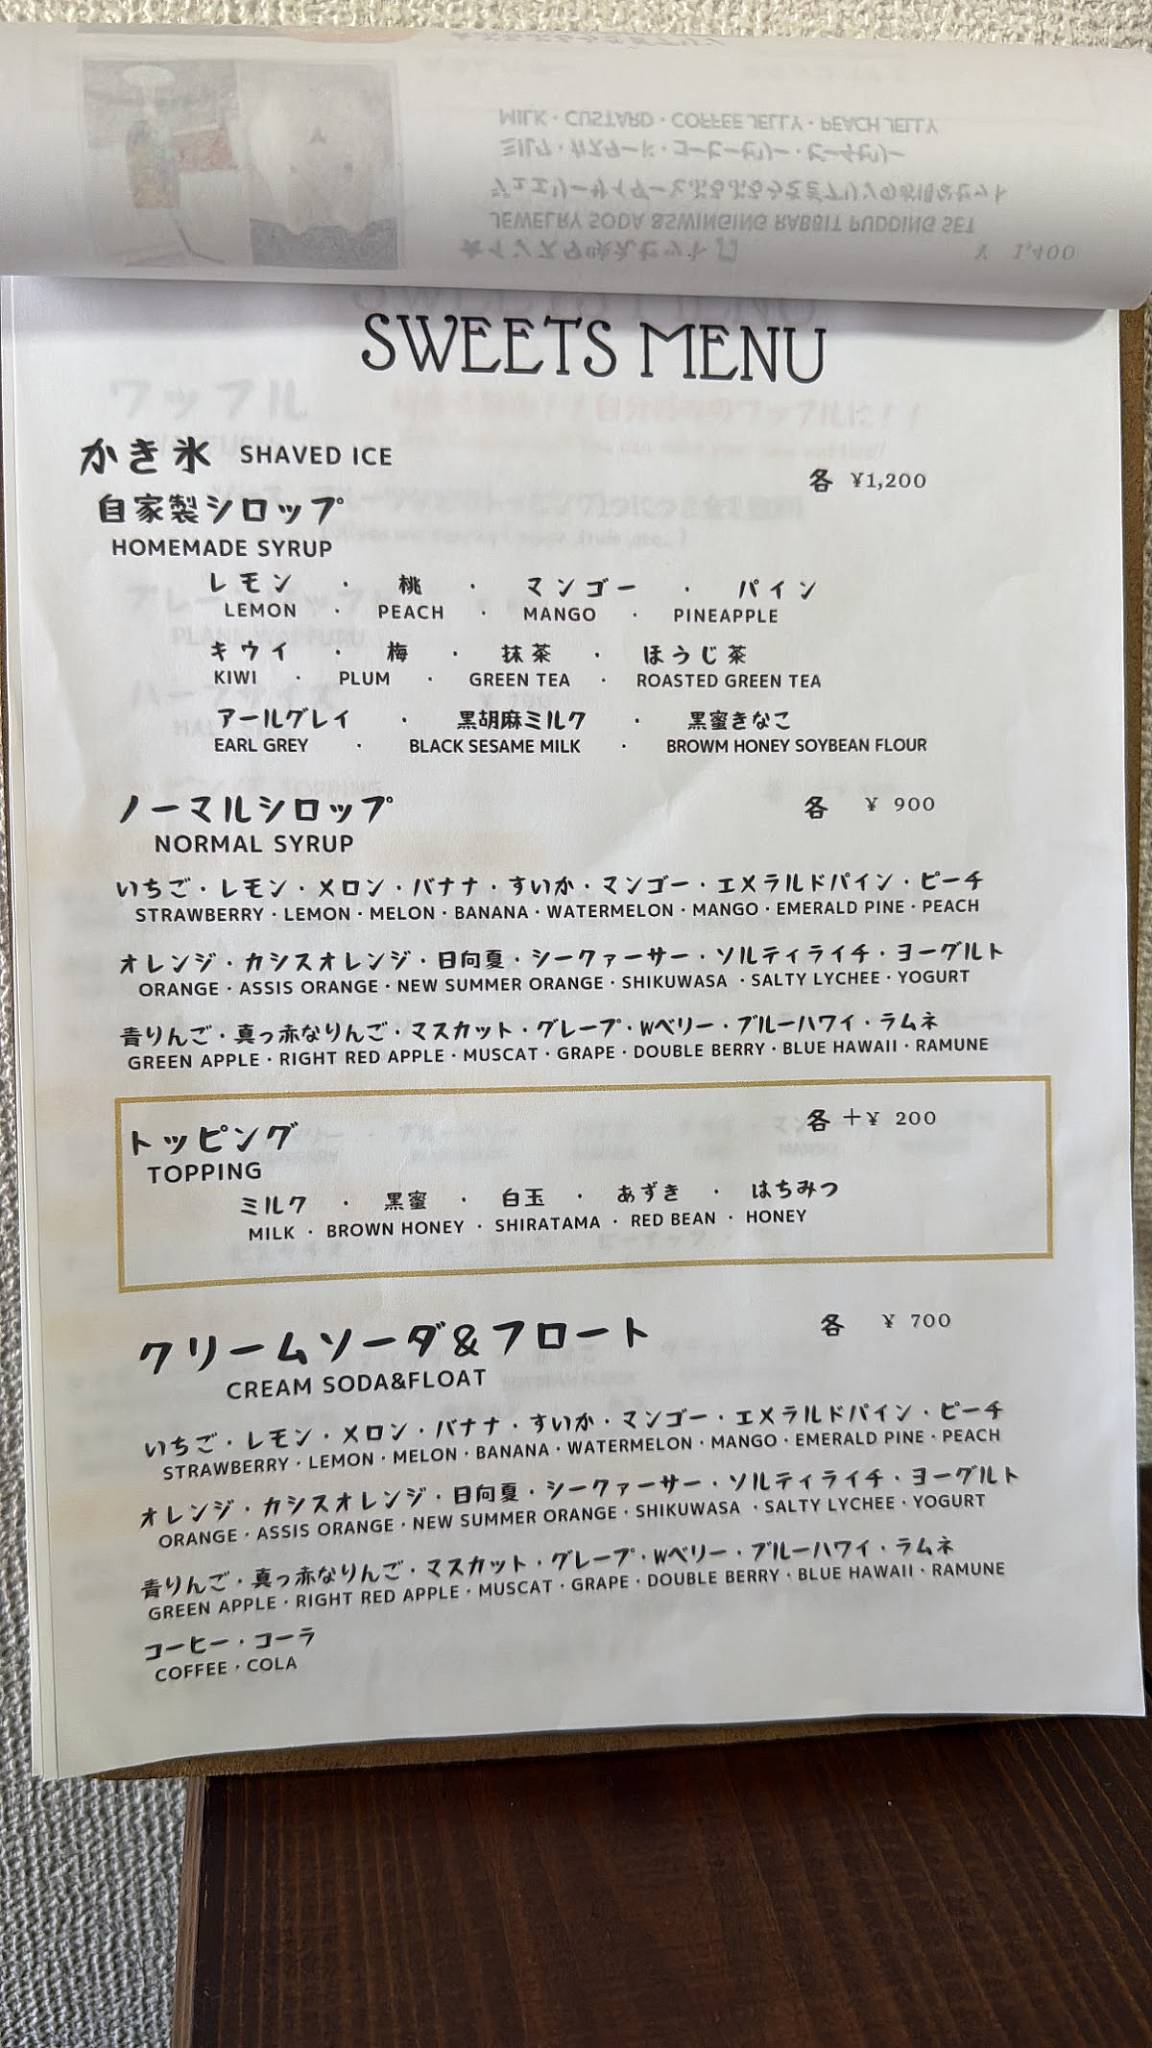 MILK・CUSTARD・COFFEE JELLY・PEACH JELLY
ミルク・カスタード・コーヒーゼリー・ピーチゼリー
JEWELRY SODA &SWINGING RABBIT PUDDING SET
★インスタ映えセット♫
¥ 1,400
SWEETS MENU
かき氷 SHAVED ICE
各 ¥1,200
自家製シロップ
HOMEMADE SYRUP
レモン ・ 桃 ・ マンゴー ・ パイン
LEMON ・ PEACH ・ MANGO ・ PINEAPPLE
キウイ ・ 梅 ・ 抹茶 ・ ほうじ茶
KIWI ・ PLUM ・ GREEN TEA ・ ROASTED GREEN TEA
アールグレイ ・ 黒胡麻ミルク ・ 黒蜜きなこ
EARL GREY ・ BLACK SESAME MILK ・ BROWM HONEY SOYBEAN FLOUR
ノーマルシロップ 各 ¥ 900
NORMAL SYRUP
いちご・レモン・メロン・バナナ・すいか・マンゴー・エメラルドパイン・ピーチ
STRAWBERRY・LEMON・MELON・BANANA・WATERMELON・MANGO・EMERALD PINE・PEACH
オレンジ・カシスオレンジ・日向夏・シークァーサー・ソルティライチ・ヨーグルト
ORANGE・ASSIS ORANGE・NEW SUMMER ORANGE・SHIKUWASA ・SALTY LYCHEE・YOGURT
青りんご・真っ赤なりんご・マスカット・グレープ・Wベリー・ブルーハワイ・ラムネ
GREEN APPLE・RIGHT RED APPLE・MUSCAT・GRAPE・DOUBLE BERRY・BLUE HAWAII・RAMUNE
トッピング 各 +¥ 200
TOPPING
ミルク ・ 黒蜜 ・ 白玉 ・ あずき ・ はちみつ
MILK ・ BROWN HONEY ・ SHIRATAMA ・ RED BEAN ・ HONEY
クリームソーダ&フロート 各 ¥ 700
CREAM SODA&FLOAT
いちご・レモン・メロン・バナナ・すいか・マンゴー・エメラルドパイン・ピーチ
STRAWBERRY・LEMON・MELON・BANANA・WATERMELON・MANGO・EMERALD PINE・PEACH
オレンジ・カシスオレンジ・日向夏・シークァーサー・ソルティライチ・ヨーグルト
ORANGE・ASSIS ORANGE・NEW SUMMER ORANGE・SHIKUWASA ・SALTY LYCHEE・YOGURT
青りんご・真っ赤なりんご・マスカット・グレープ・Wベリー・ブルーハワイ・ラムネ
GREEN APPLE・RIGHT RED APPLE・MUSCAT・GRAPE・DOUBLE BERRY・BLUE HAWAII・RAMUNE
コーヒー・コーラ
COFFEE・COLA